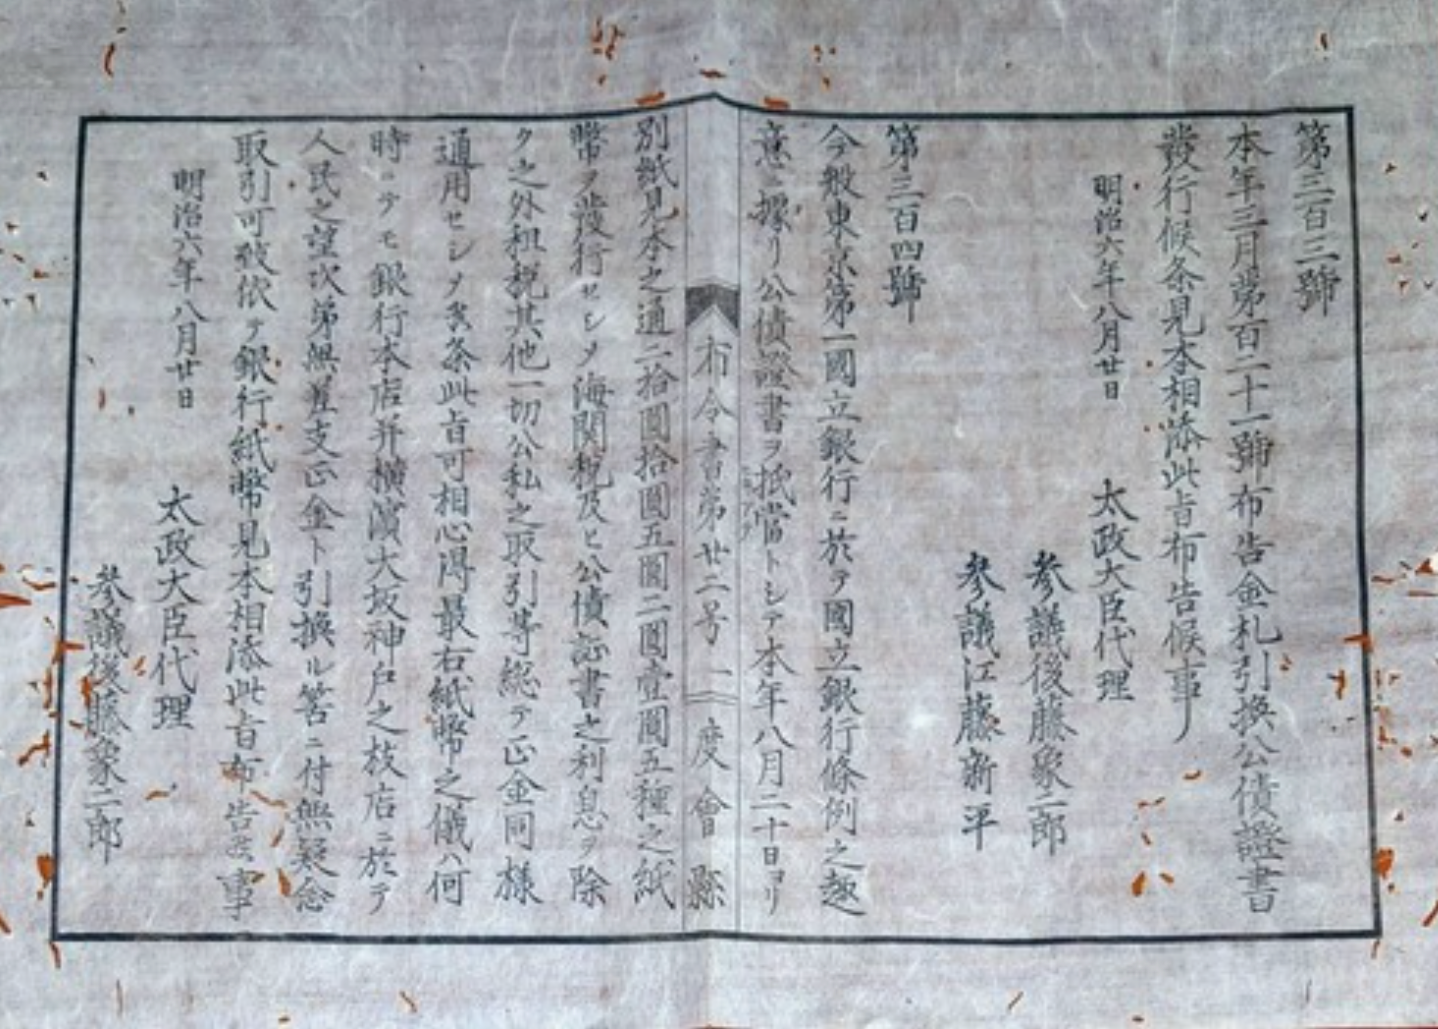 第三百三號
本年三月第百二十一號布告金札引換公債證書
發行候条見本相添此旨布告候事
明治六年八月廿日
太政大臣代理
参議後藤象二郎
参議江藤新平
第三百四號
今般東京第一國立銀行ニ於テ國立銀行條例之趣
意ニ據リ公債證書ヲ抵當トシテ本年八月二十日ヨリ
布令書第廿二号 一 度會縣
別紙見本之通二拾圓拾圓五圓二圓壹圓五種之紙
幣ヲ發行セシメ海関税及ヒ公債証書之利息ヲ除
ク之外租税其他一切公私之取引等総テ正金同様
通用セシメ候条此旨可相心得最右紙幣之儀ハ何
時ニテモ銀行本店并横濱大坂神戸之枝店ニ於テ
人民之望次第無差支正金ト引換ル筈ニ付無疑念
取引可致依テ銀行紙幣見本相添此旨布告候事
明治六年八月廿日
太政大臣代理
参議後藤象二郎